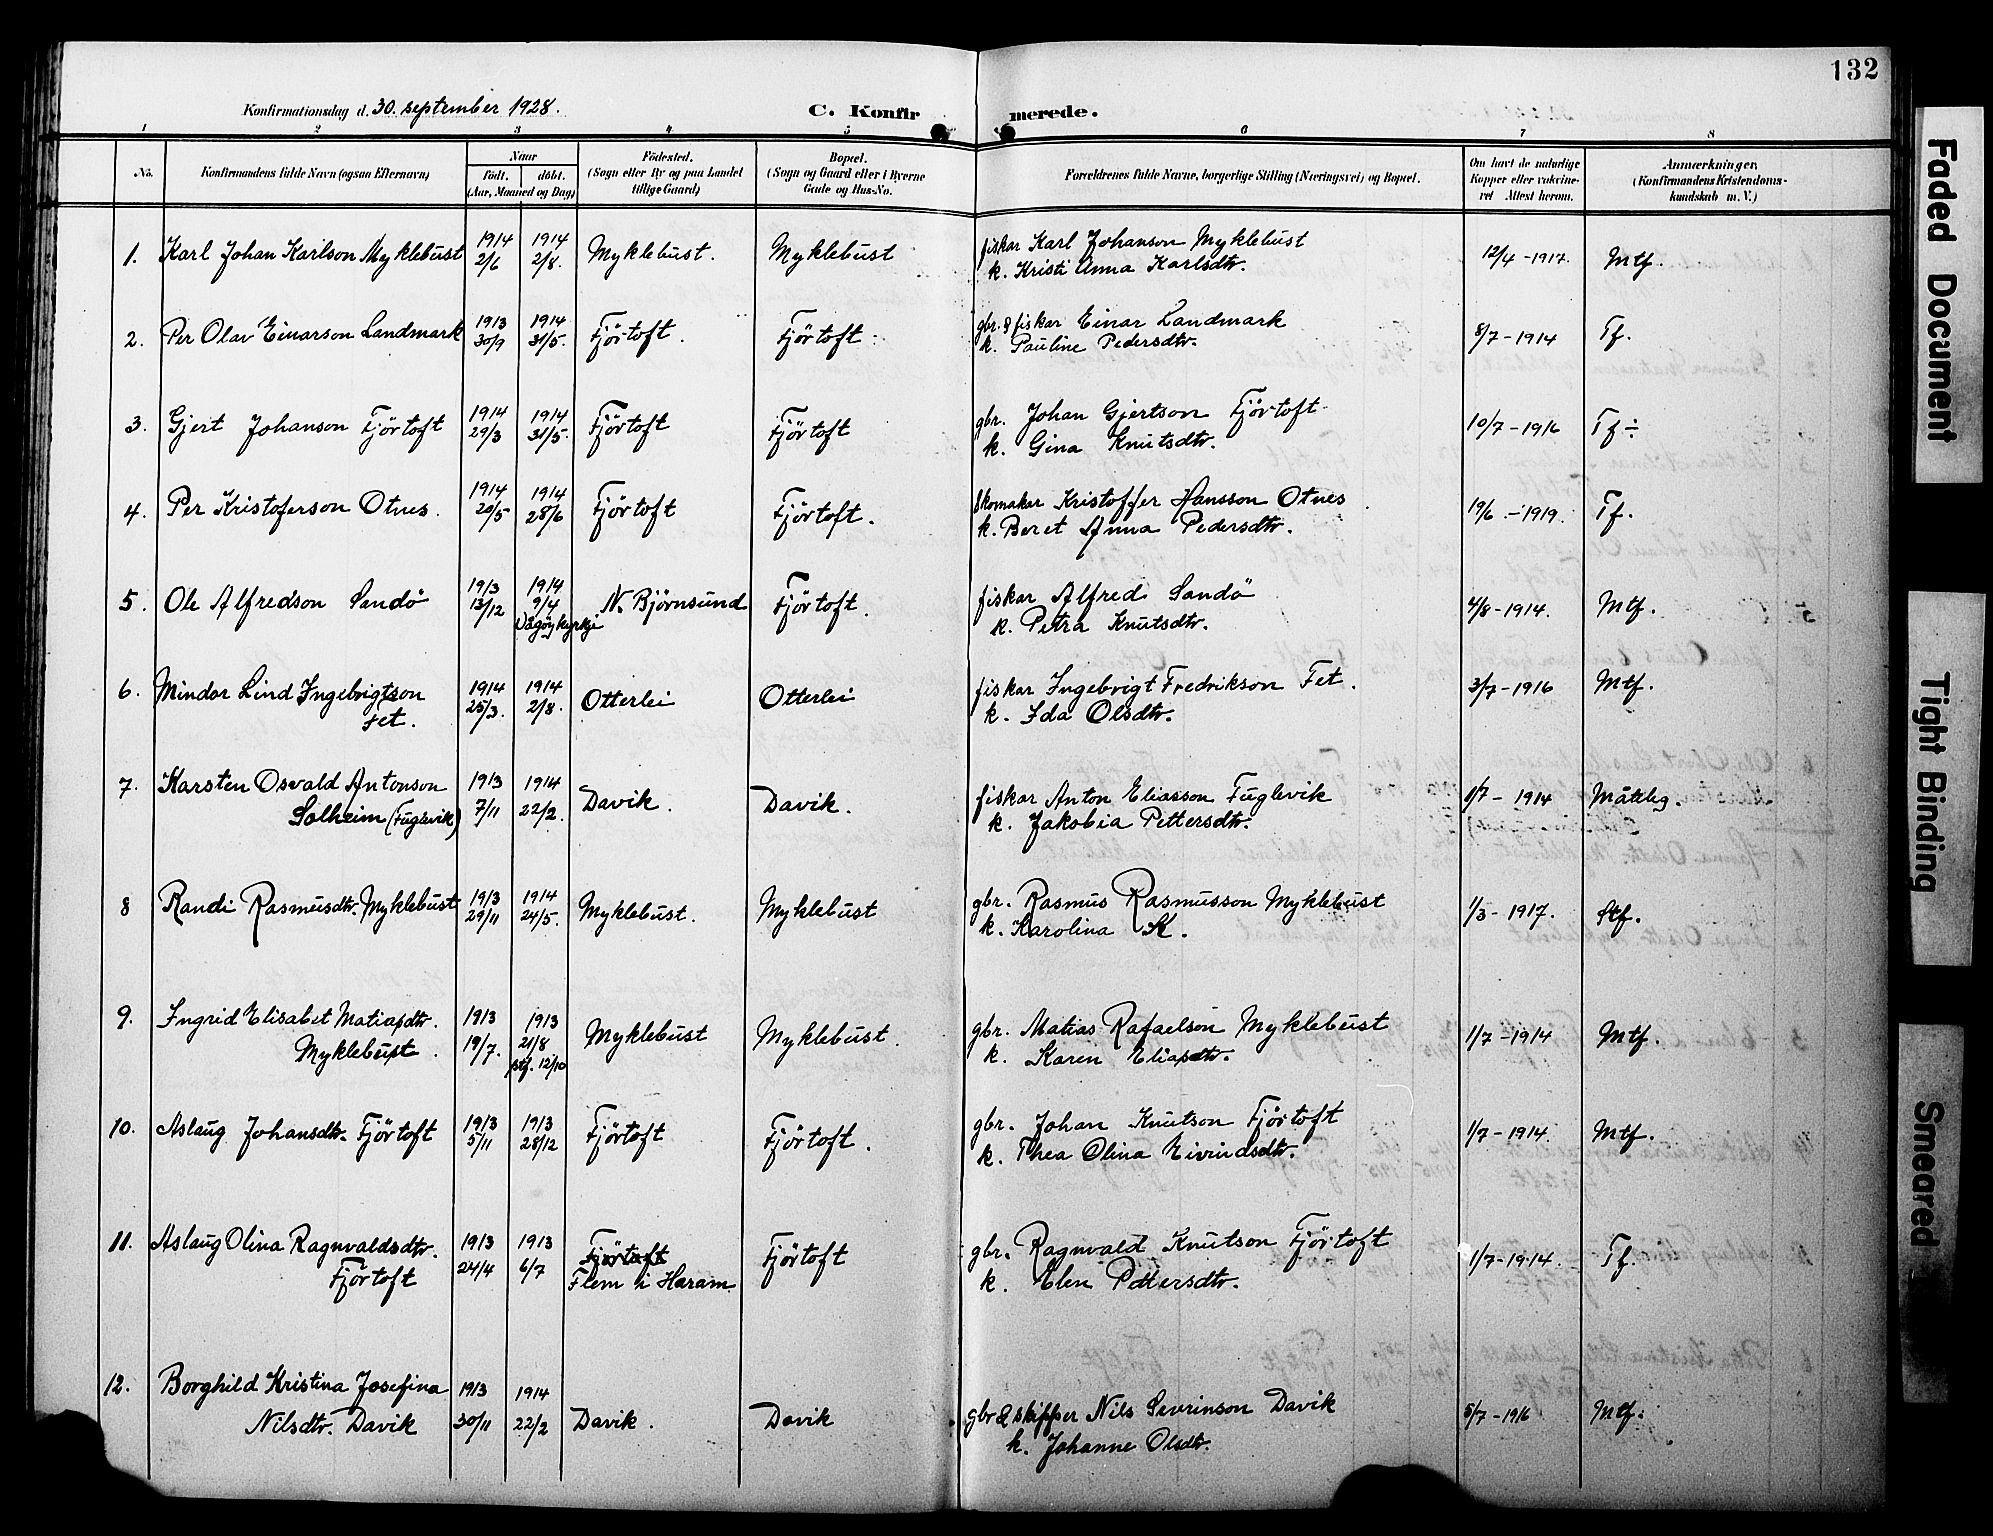 132
Konfirmationsdag d. 30. september 1928. C. Konfirmerede.
1 2 3 4 5 6 7 8
No. Konfirmandens fulde Navn (ogsaa Efternavn) Naar Födested. Bopæl. Forældrenes fulde Navne, borgerlige Stilling (Næringsvei) og Bopæl. Om havt de naturlige Anmærkninger.
födt. döbt. (Sogn eller By og paa Landet (Sogn og Gaard eller i Byerne Kopper eller vakcine- (Konfirmandens Kristendoms-
(Aar, Maaned og Dag) tillige Gaard) Gade og Hus-No. ret Attest herom. kundskab m. V.)
1. Karl Johan Karlson Myklebust 1914 2/6 1914 2/8. Myklebust. Myklebust fiskar Karl Johanson Myklebust 12/4 - 1917. Mtf.
k. Kristi Anna Karlsdtr.
2. Per Olav Einarson Landmark 1913 30/9 1914 31/5. Fjörtoft. Fjörtoft. gbr. & fiskar Einar Landmark 8/7 - 1914 Tf.
k. Pauline Pedersdtr.
3. Gjert Johanson Fjörtoft 1914 29/3 1914 31/5. Fjörtoft Fjörtoft gbr. Johan Gjertson Fjörtoft 10/7 - 1916 Tf ÷
k. Gina Knutsdtr.
4. Per Kristoferson Otnes. 1914 20/5 1914 28/6 Fjörtoft Fjörtoft. Skomakar Kristoffer Hansson Otnes 19/6 - 1919. Tf.
k. Beret Anna Pedersdtr.
5. Ole Alfredson Sandö 1913 13/12 1914 9/4 N. Björnsund Fjörtoft. fiskar Alfred Sandö 4/8 - 1914. Mtf.
Vågöy kyrkje k. Petra Knutsdtr.
6. Mindor Lind Ingebrigtson 1914 25/3. 1914 2/8. Otterlei Otterlei fiskar Ingebrigt Fredrikson Fet. 3/7 - 1916 Mtf.
Fet. k. Ida Olsdtr.
7. Karsten Osvald Antonson 1913 7/11 1914 22/2. Davik. Davik. fiskar Anton Eliasson Fuglevik 1/7 - 1914 Måteleg.
Solheim (Fuglevik) k. Jakobia Pettersdtr.
8 Randi Rasmusdtr. Myklebust 1913 29/11 1914 24/5. Myklebust. Myklebust gbr. Rasmus Rasmusson Myklebust 1/3 - 1917. Stf.
k. Karolina K.
9. Ingrid Elisabet Matiasdtr. 1913 19/7. 1913 21/8 Myklebust Myklebust. gbr. Matias Rafaelson Myklebust 1/7 - 1914 Mtf.
Myklebust. stf. 12/10 k. Karen Eliasdtr.
10. Aslaug Johansdtr. Fjörtoft 1913 5/11 1913 28/12 Fjörtoft Fjörtoft. gbr. Johan Knutson Fjörtoft 1/7 - 1914. Mtf.
k. Thea Olina Eivindsdtr.
11. Aslaug Olina Ragnvaldsdtr. 1913 24/4 1913 6/7 Fjörtoft Fjörtoft gbr. Ragnvald Knutson Fjörtoft 1/7 - 1914. Tf.
Fjörtoft Flem i Haram. k. Elen Pettersdtr.
12. Borghild Kristina Josefina 1913 30/11 1914 22/2 Davik. Davik gbr & skipper Nils Sevrinson Davik 5/7 - 1916 Mtf.
Nilsdtr. Davik k. Johanne Olsdtr.
Faded Document
Tight Binding
Smeared